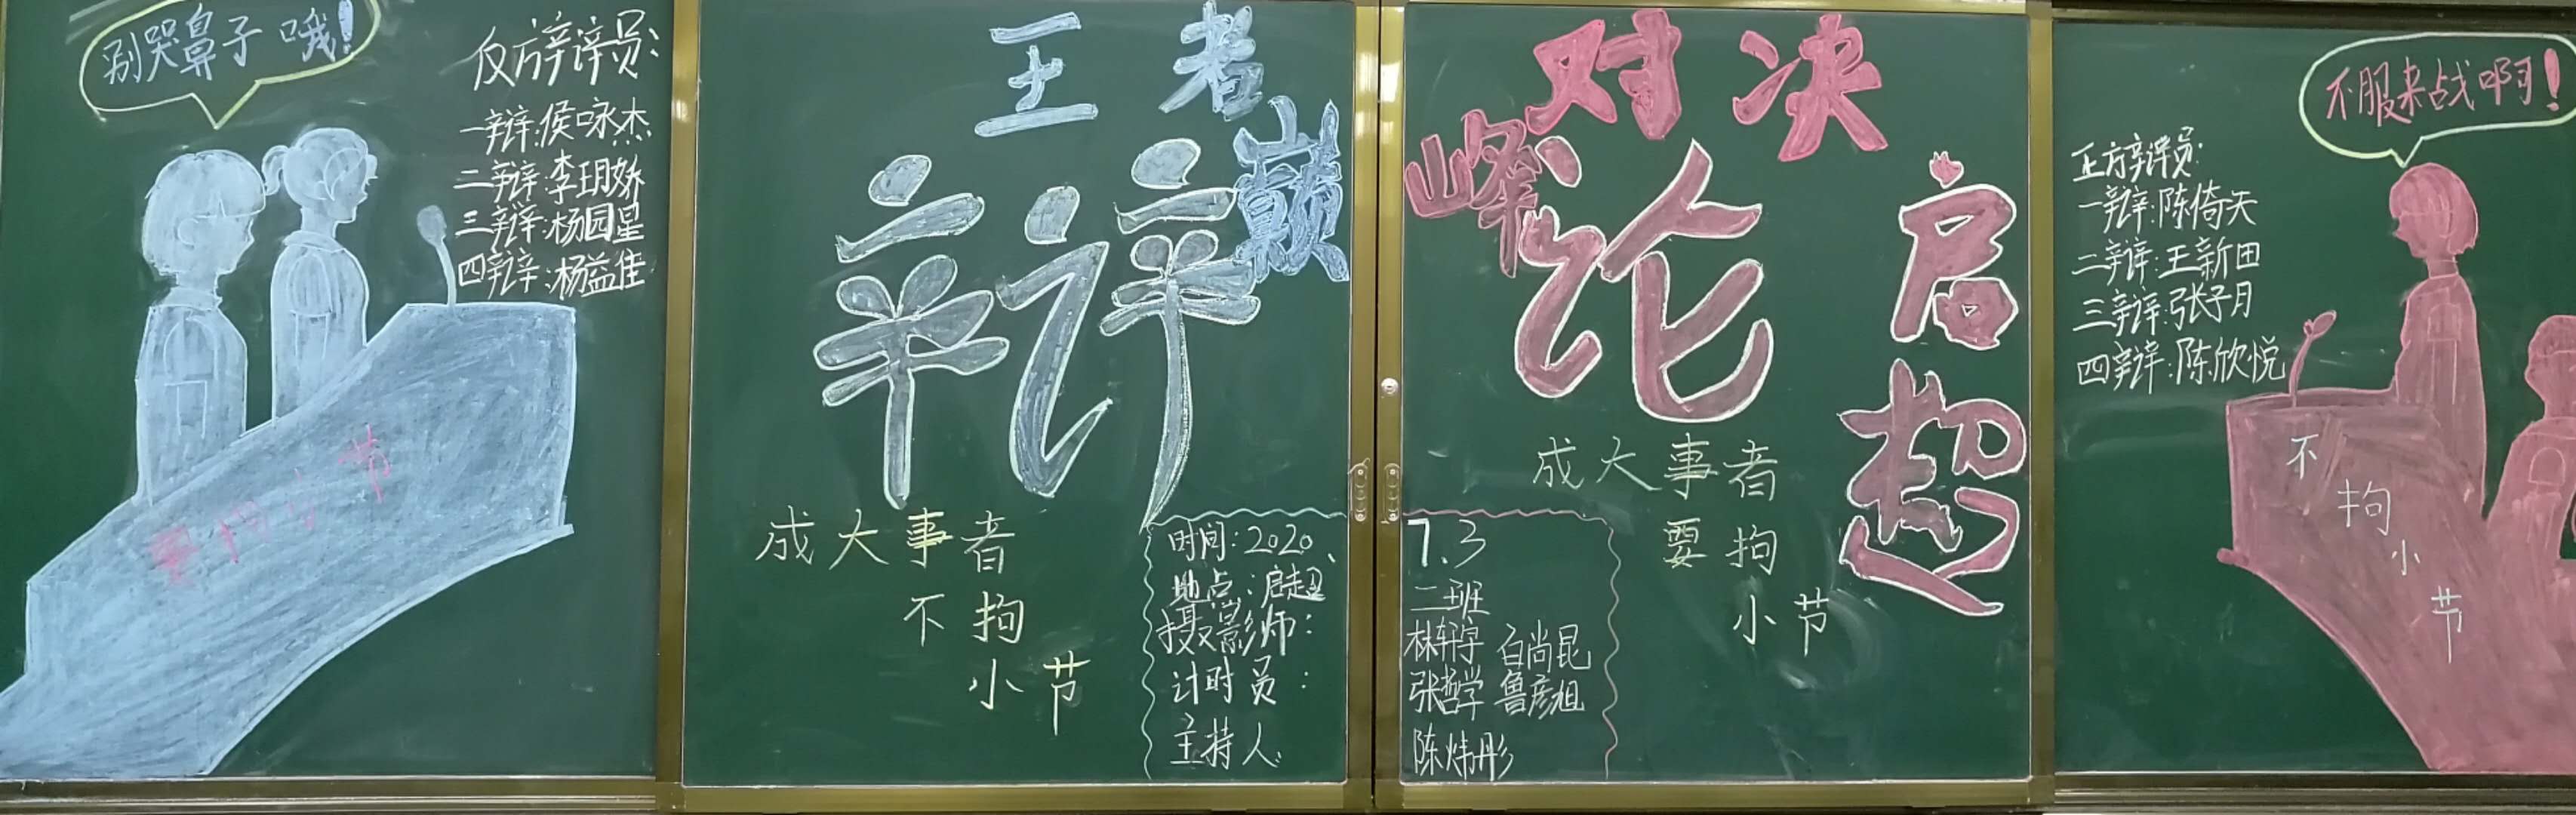 别哭鼻子哦!
反方辩辩员:
一辩:侯咏杰
二辩:李玥娇
三辩:杨园星
四辩:杨益佳
要拘小节
王者
对决
巅
峰
辩论
启超
成大事者
不拘
小节
成大事者
要拘
小节
时间:2020、7.3
地点:启超二班
摄影师:林轩宇 白尚昆
计时员:张哲学 鲁彦旭
主持人:陈炜彤
不服来战啊!
正方辩辩员:
一辩:陈倚天
二辩:王新田
三辩:张子月
四辩:陈欣悦
不拘小节